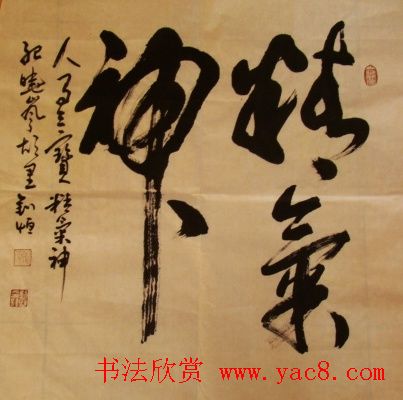 精氣
神
人三寶精氣神
紀曉嵐故里
书法欣赏 www.yac8.com